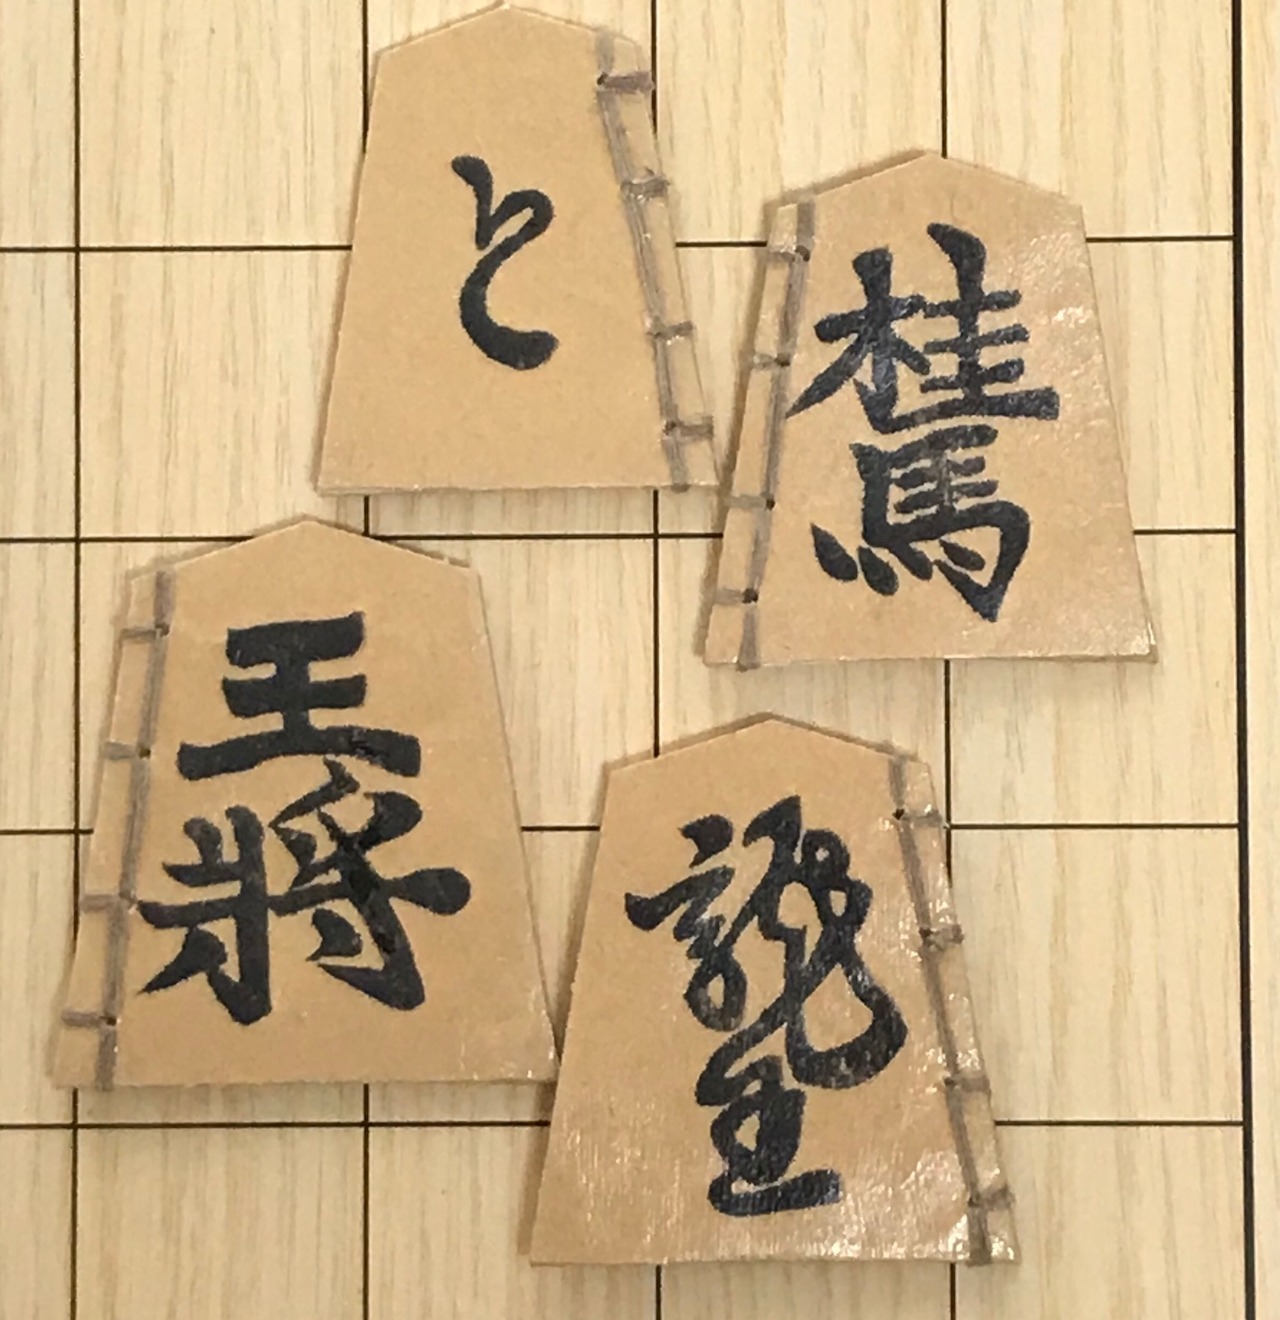 と
桂馬
王将
龍王